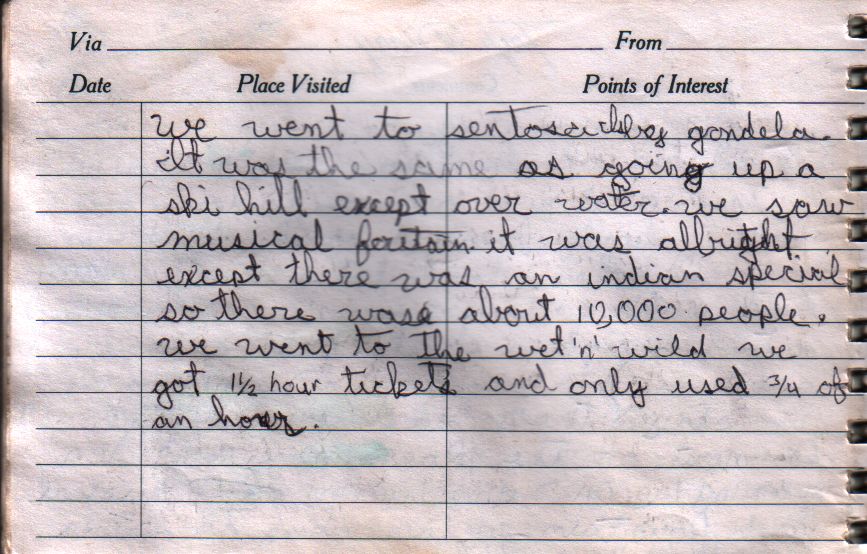 Via From
Date Place Visited Points of Interest
we went to sentosa by gondola.
it was the same as going up a
ski hill except over water. we saw
musical fountain it was allright
except there was an indian special
so there was about 10,000 people.
we went to the wet'n'wild we
got 1½ hour tickets and only used ¾ of
an hour.